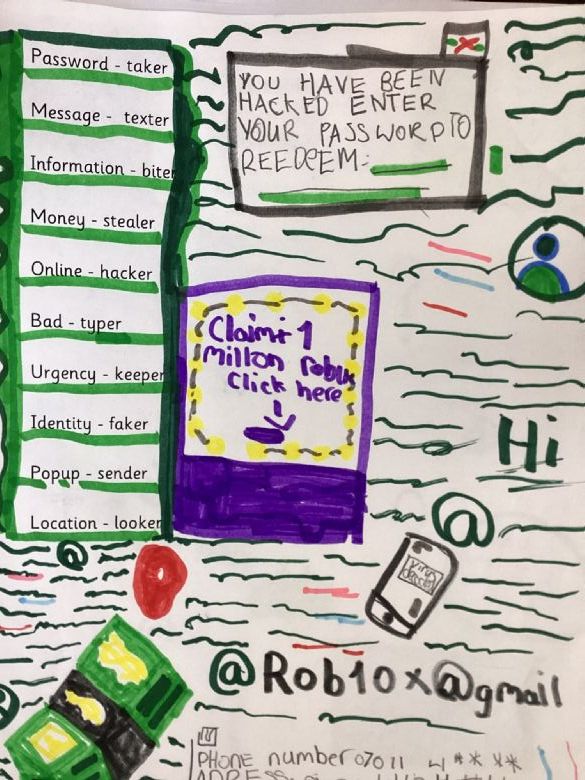 Password - taker
Message - texter
Information - biter
Money - stealer
Online - hacker
Bad - typer
Urgency - keeper
Identity - faker
Popup - sender
Location - looker
YOU HAVE BEEN
HACKED ENTER
YOUR PASSWORD TO
REEDEEM:
Claim 1
millon robux
Click here
Hi
@
@
@Rob10x@gmail
PHONE number 07011
ADDRESS